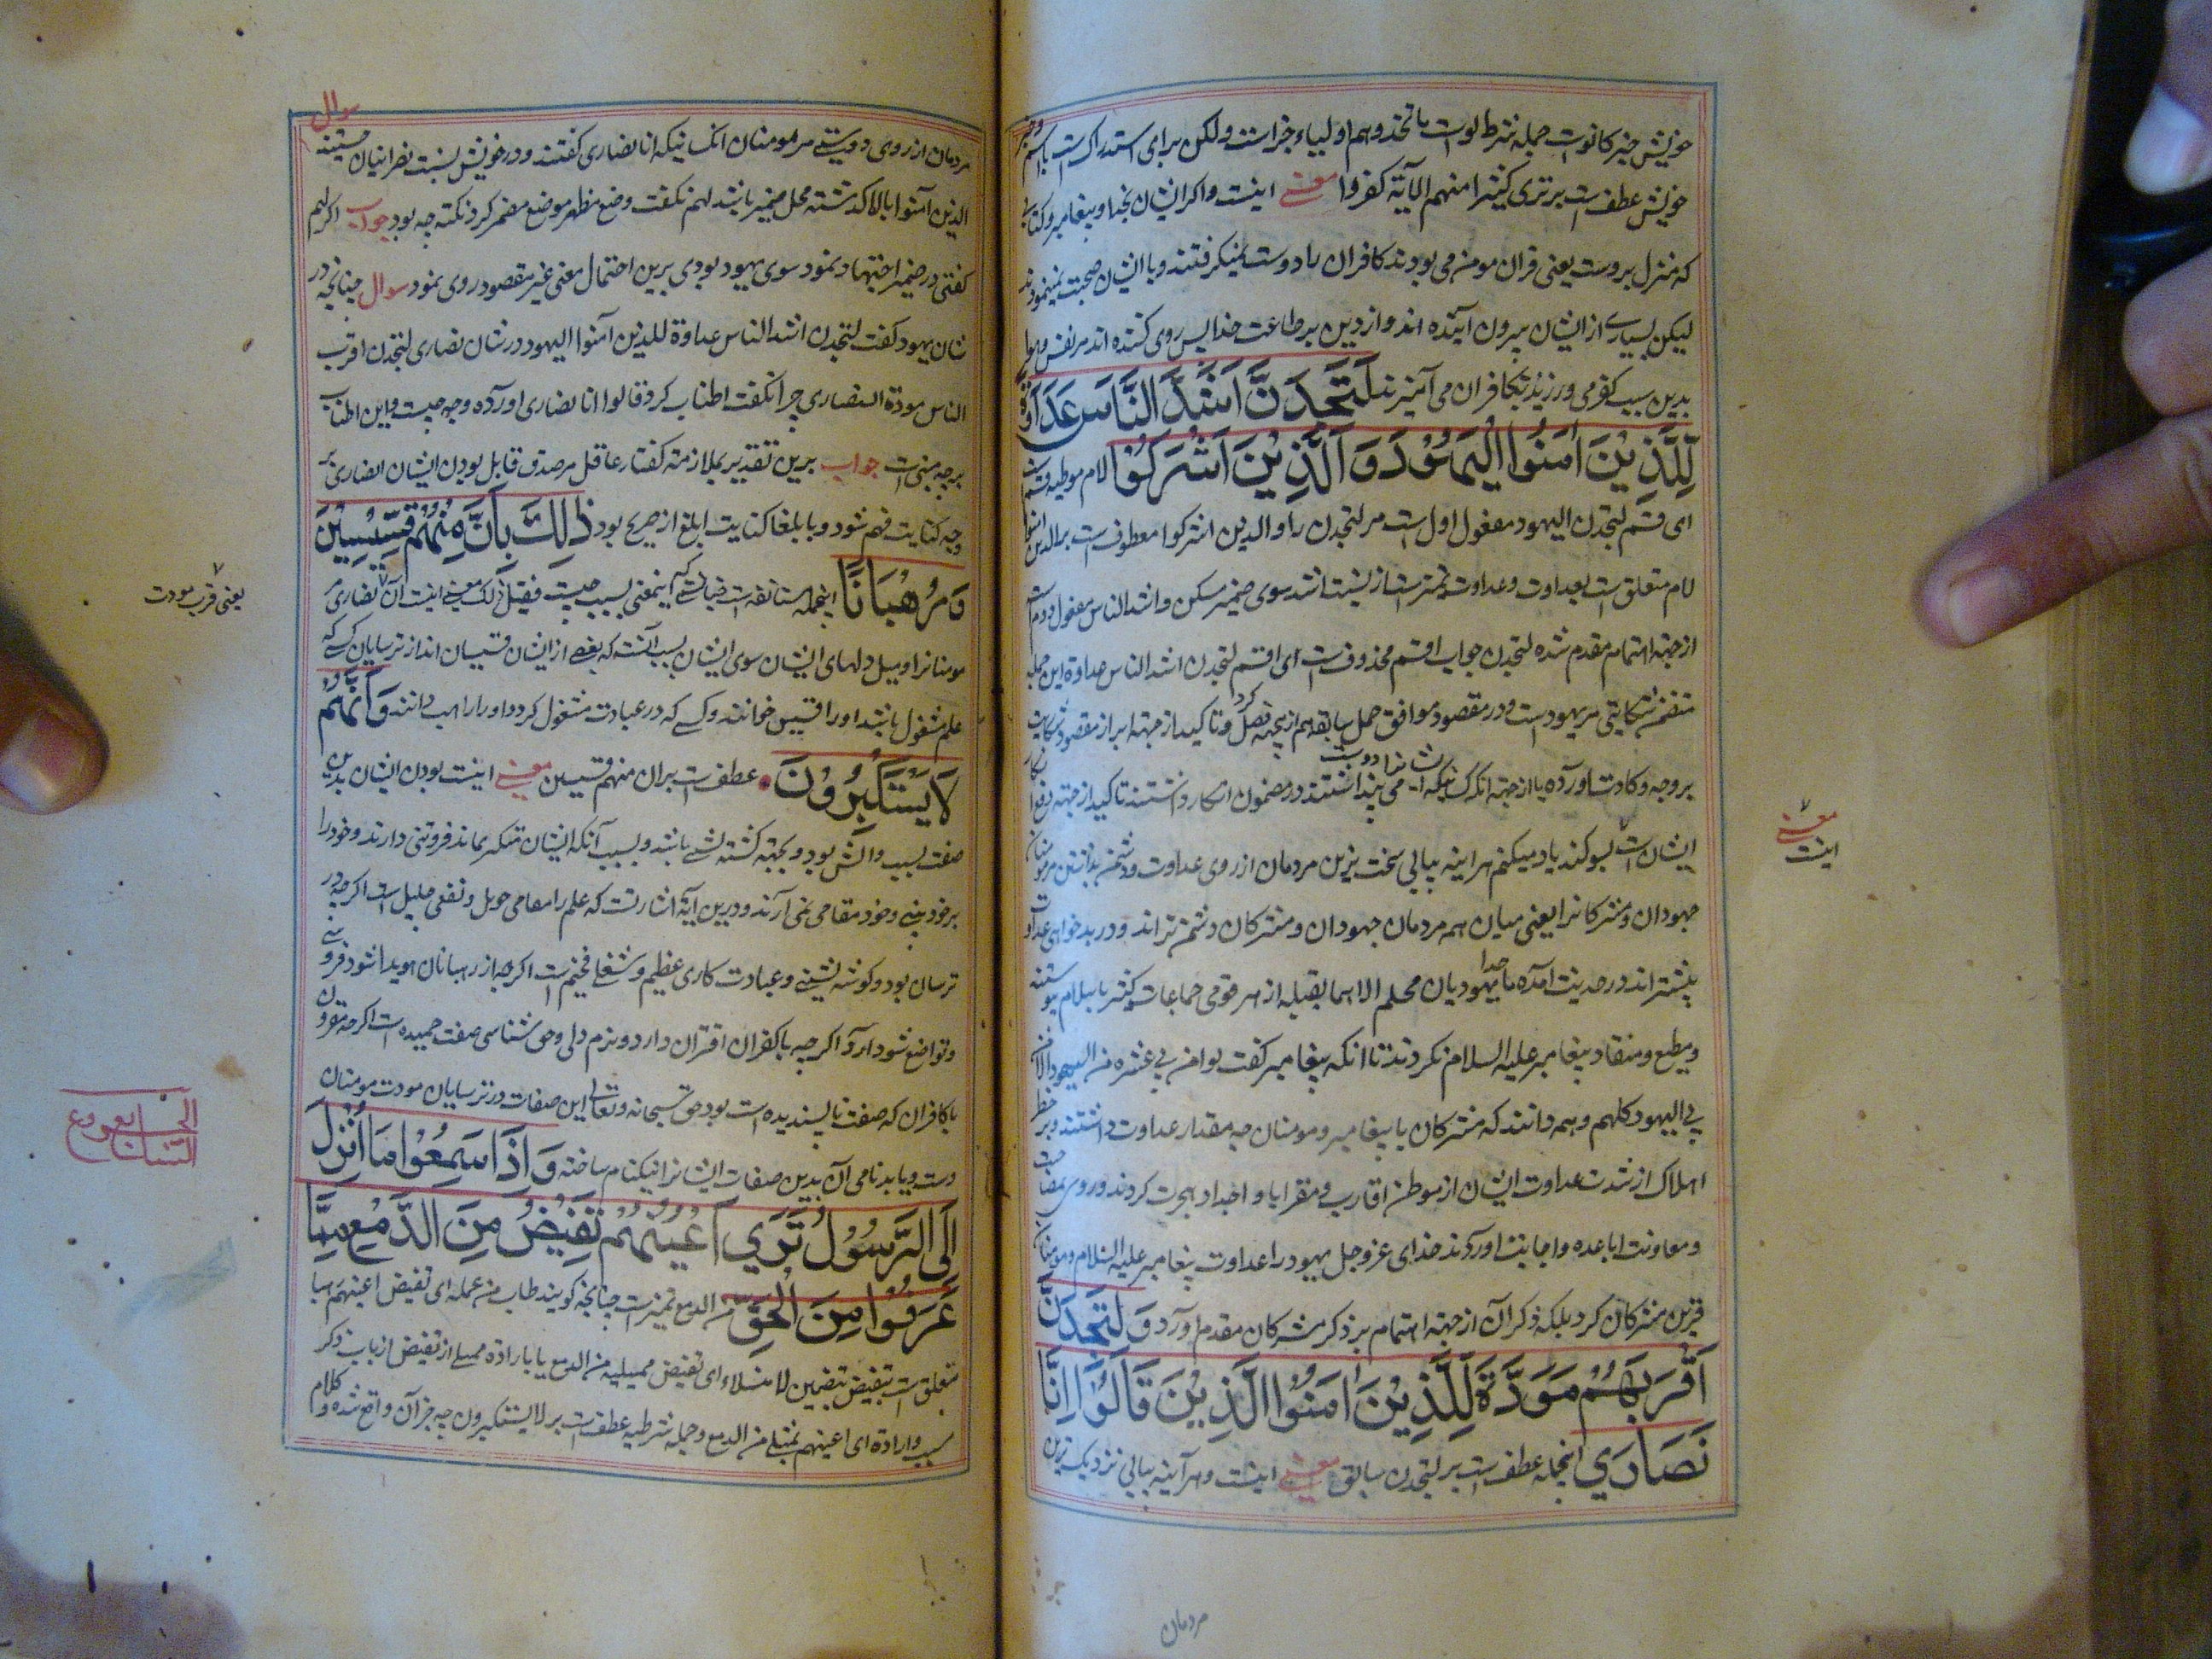 خویش خبر کانوا است جمله شرط لو است ما تخذوهم اولیاء جزا است ولکن برای استدراک است با اسم و خبر
خویش عطف است بر تری کثیرا منهم الآیة کفروا معنی اینست واکر ایشان بخدا و پیغامبر و کتابی
که منزل بروست یعنی قران مومن می بودند کافران را دوست نمیکرفتند و با ایشان صحبت نمینمودند
لیکن بسیاری از ایشان بیرون آینده اند و از دین بر طاعت خدا پس روی کننده اند مر نفس و هوا
بدین سبب کفر می ورزند بکافران می آمیزند لَتَجِدَنَّ اَشَدَّ النَّاسِ عَدَاوَةً
لِّلَّذِیْنَ اٰمَنُوا الْیَهُوْدَ وَ الَّذِیْنَ اَشْرَکُوْا لام موطیه قسم است
ای قسم لتجدن الیهود مفعول اول است مر لتجدن را و الذین اشرکوا معطوف است بر الذین امنوا
لام متعلق است بعداوت و عداوت تمیز است از نسبت اشد سوی ضمیر مسکن و اشد الناس مفعول دوم است
از جهة اهتمام مقدم شده لتجدن جواب اقسم محذوف است ای اقسم لتجدن اشد الناس عداوة این جمله
متضمن شکایتی مر یهود است و در مقصود موافق جمل سابقه هم ازیجهه فصل کرد و تاکید از جهة ابراز مقصود شکایت
بر وجه وکادت آورده یا از جهة آنک کسانیکه ایشانرا دوست می پنداشتند در مضمون انکار داشتند تاکید از جهة دفع انکار
ایشان است بسوکند یاد میکنم هر اینه بیابی سخت ترین مردمان از روی عداوت و دشمن داشتن مر مومنان
جهودان و مشرکانرا یعنی میان همه مردمان جهودان و مشرکان دشمن تر اند و در بدخواهی عداوت
بیشتر اند در حدیث آمده ما یهودیان محلم الا هما بقبله از هر قومی جماعات کثیر باسلام پیوستند
و مطیع و منقاد پیغامبر علیه السلام نکردند تا انکه پیغامبر کفت لو امن بی عشرة من الیهود لا آمن
بی الیهود کلهم و همه دانند که مشرکان با پیغامبر و مومنان چه مقدار عداوت داشتند و بر خطر
اهلاک از شدت عداوت ایشان از موطن اقارب و مقر آبا و اجداد هجرت کردند و روی بمصاحبت
و معاونت اباعده و اجانب آوردند خدای عز و جل یهود را عداوت پیغامبر علیه السلام و مومنان
قرین مشرکان کرد بلکه ذکر آن از جهة اهتمام بر ذکر مشرکان مقدم آورد وَ لَتَجِدَنَّ
اَقْرَبَهُمْ مَوَدَّةً لِّلَّذِیْنَ اٰمَنُوا الَّذِیْنَ قَالُوْا اِنَّا
نَصَارٰی اینجمله عطف است بر لتجدن سابق معنی اینست و هر آینه بیابی نزدیک ترین
معنی
اینست
مردمان
سوال
مردمان از روی دوستی مر مومنان آنکسانیکه انا نصاری کفتند و در خویش نسبت نصرانیان هستند
الذین آمنوا بالا کذشته محل ضمیر باشد لهم نکفت وضع مظهر موضع مضمر کرد نکته چه بود جواب اکر لهم
کفتی در ضمیر اجتهاد نمود سوی یهود بودی برین احتمال معنی غیر مقصود روی نمود سوال چنانچه در
شان یهود کفت لتجدن اشد الناس عداوة للذین آمنوا الیهود در شان نصاری لتجدن اقرب
الناس مودة النصاری چرا نکفت اطناب کرد قالوا انا نصاری آورده وجه چیست و این اطناب
بر چه مبنی است جواب برین تقدیر بملازمة کفتار عاقل مر صدق قابل بودن ایشان انصاری بر
وجه کنایت فهم شود و با بلغا کنایت ابلغ از صریح بود ذٰلِکَ بِاَنَّ مِنْهُمْ قِسِّیْسِیْنَ
وَ رُهْبَانًا اینجمله مستانفه است اینمعنی بسبب چیست فقیل ذلک معنی اینست آن نصاری مر
مومنانرا و میل دلهای ایشان سوی ایشان بسبب آنست که بعضی از ایشان قسیسان اند از ترسایان کسی که
علم مشغول باشد او را قسیس خوانند و کسی که در عبادت مشغول کردد او را راهب دانند وَ اَنَّهُمْ
لَا یَسْتَکْبِرُوْنَ عطف است بر ان منهم قسیسین معنی اینست بودن ایشان بدین
صفت بسبب دانش بود و بجهة کشته نشی باشد و بسبب آنکه ایشان متکبر نماند فروتنی دارند و خود را
بر خود بینی و خود مقامی نمی آرند و درین آیة اشارتست که علم را مقامی جزیل و نفعی جلیل است اکر چه در
ترسان بود و کوشه نشینی و عبادت کاری عظیم و شغلی فخیم است اکر چه از رهبانان هویدا شود فروتنی
و تواضع شود آرد اکر چه با کفران اقتران دارد و نرم دلی و حق شناسی صفت حمیده است اکر چه مقرون
با کافران که صفت ناپسندیده است بود حق سبحانه و تعالی این صفات در ترسایان مودت مومنان
دست و یا بدنامی آن بدین صفات ایشانرا نیکنام ساخته وَ اِذَا سَمِعُوْا مَا اُنْزِلَ
اِلَی الرَّسُوْلِ تَرٰی اَعْیُنَهُمْ تَفِیْضُ مِنَ الدَّمْعِ مِمَّا
عَرَفُوْا مِنَ الْحَقِّ من الدمع تمیز است چنانچه کویند طاب من عمله ای تفیض اعینهم مما
متعلق است بتفیض بتضمین لامتلاء ای تفیض ممتلیة من الدمع یا باراده ممتلی از تفیض از باب ذکر
سبب و ارادة ای اعینهم تمتلی من الدمع و جمله شرطیه عطف است بر لا یستکبرون چه جز آن واقع شده و کلام
یعنی قرب مودت